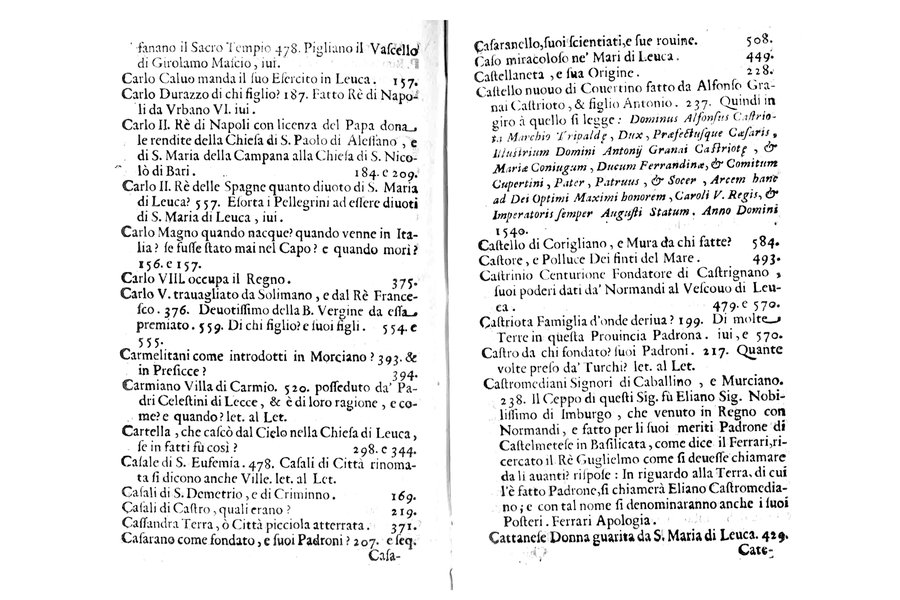 fanano il Sacro Tempio 478. Pigliano il Vaſcello
di Girolamo Maſcio, iui.
Carlo Caluo manda il ſuo Eſercito in Leuca. 157.
Carlo Durazzo di chi figlio? 187. Fatto Rè di Napo-
li da Vrbano VI. iui.
Carlo II. Rè di Napoli con licenza del Papa dona
le rendite della Chieſa di S. Paolo di Aleſſano, e
di S. Maria della Campana alla Chieſa di S. Nico-
lò di Bari. 184. e 209.
Carlo II. Rè delle Spagne quanto diuoto di S. Maria
di Leuca? 557. Eſorta i Pellegrini ad eſſere diuoti
di S. Maria di Leuca, iui.
Carlo Magno quando nacque? quando venne in Ita-
lia? ſe fuſſe ſtato mai nel Capo? e quando morì?
156. e 157.
Carlo VIII. occupa il Regno. 375.
Carlo V. trauagliato da Solimano, e dal Rè France-
ſco. 376. Deuotiſſimo della B. Vergine da eſſa
premiato. 559. Di chi figlio? e ſuoi figli. 554. e
555.
Carmelitani come introdotti in Morciano? 393. &
in Preſicce? 394.
Carmiano Villa di Carmio. 520. poſſeduto da' Pa-
dri Celeſtini di Lecce, & è di loro ragione, e co-
me? e quando? let. al Let.
Cartella, che caſcò dal Cielo nella Chieſa di Leuca,
ſe in fatti fù così? 298. e 344.
Caſale di S. Eufemia. 478. Caſali di Città rinoma-
ta ſi dicono anche Ville. let. al Let.
Caſali di S. Demetrio, e di Criminno. 169.
Caſali di Caſtro, quali erano? 219.
Caſſandra Terra, ò Città picciola atterrata. 371.
Caſarano come fondato, e ſuoi Padroni? 207. e ſeq.
Caſa-
Caſaranello, ſuoi ſcientiati, e ſue rouine. 508.
Caſo miracoloſo ne' Mari di Leuca. 449.
Caſtellaneta, e ſua Origine. 228.
Caſtello nuouo di Couertino fatto da Alfonſo Gra-
nai Caſtrioto, & figlio Antonio. 237. Quindi in
giro à quello ſi legge: Dominus Alfonſus Caſtrio-
ta Marchio Tripaldę, Dux, Præfectuſque Cæſaris,
Illuſtrium Domini Antonij Granai Caſtriotę, &
Mariæ Coniugum, Ducum Ferrandinæ, & Comitum
Cupertini, Pater, Patruus, & Socer, Arcem hanc
ad Dei Optimi Maximi honorem, Caroli V. Regis, &
Imperatoris ſemper Auguſti Statum. Anno Domini
1540.
Caſtello di Corigliano, e Mura da chi fatte? 584.
Caſtore, e Polluce Dei finti del Mare. 493.
Caſtrinio Centurione Fondatore di Caſtrignano,
ſuoi poderi dati da' Normandi al Veſcouo di Leu-
ca. 479. e 570.
Caſtriota Famiglia d'onde deriua? 199. Di molte
Terre in queſta Prouincia Padrona. iui, e 570.
Caſtro da chi fondato? ſuoi Padroni. 217. Quante
volte preſo da' Turchi? let. al Let.
Caſtromediani Signori di Caballino, e Murciano.
238. Il Ceppo di queſti Sig. fù Eliano Sig. Nobi-
liſſimo di Imburgo, che venuto in Regno con
Normandi, e fatto per li ſuoi meriti Padrone di
Caſtelmeteſe in Baſilicata, come dice il Ferrari, ri-
cercato il Rè Guglielmo come ſi deueſſe chiamare
da li auanti? riſpoſe: In riguardo alla Terra, di cui
l'è fatto Padrone, ſi chiamerà Eliano Caſtromedia-
no; e con tal nome ſi denominaranno anche i ſuoi
Poſteri. Ferrari Apologia.
Cattaneſe Donna guarita da S. Maria di Leuca. 429.
Cate-